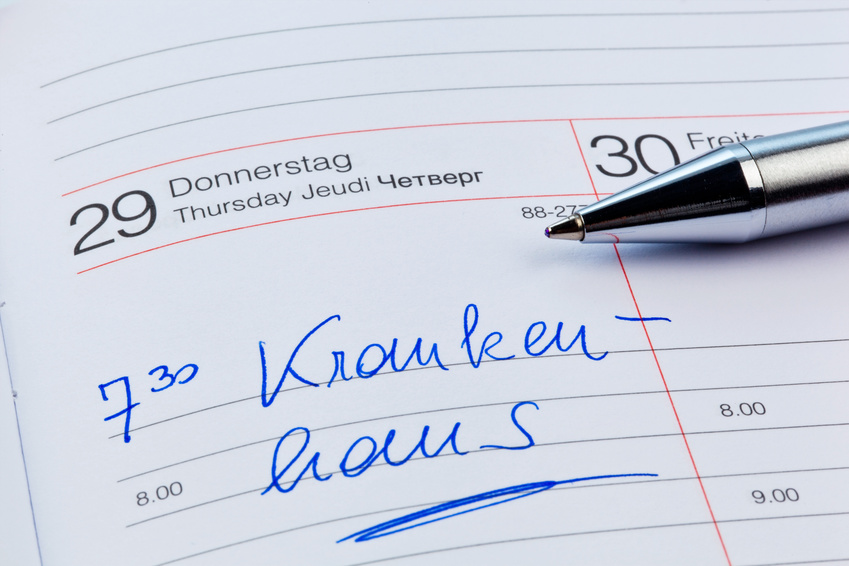 29 Donnerstag
Thursday Jeudi Четверг
88-277
30
7³⁰ Kranken-
haus
8.00
8.00
9.00